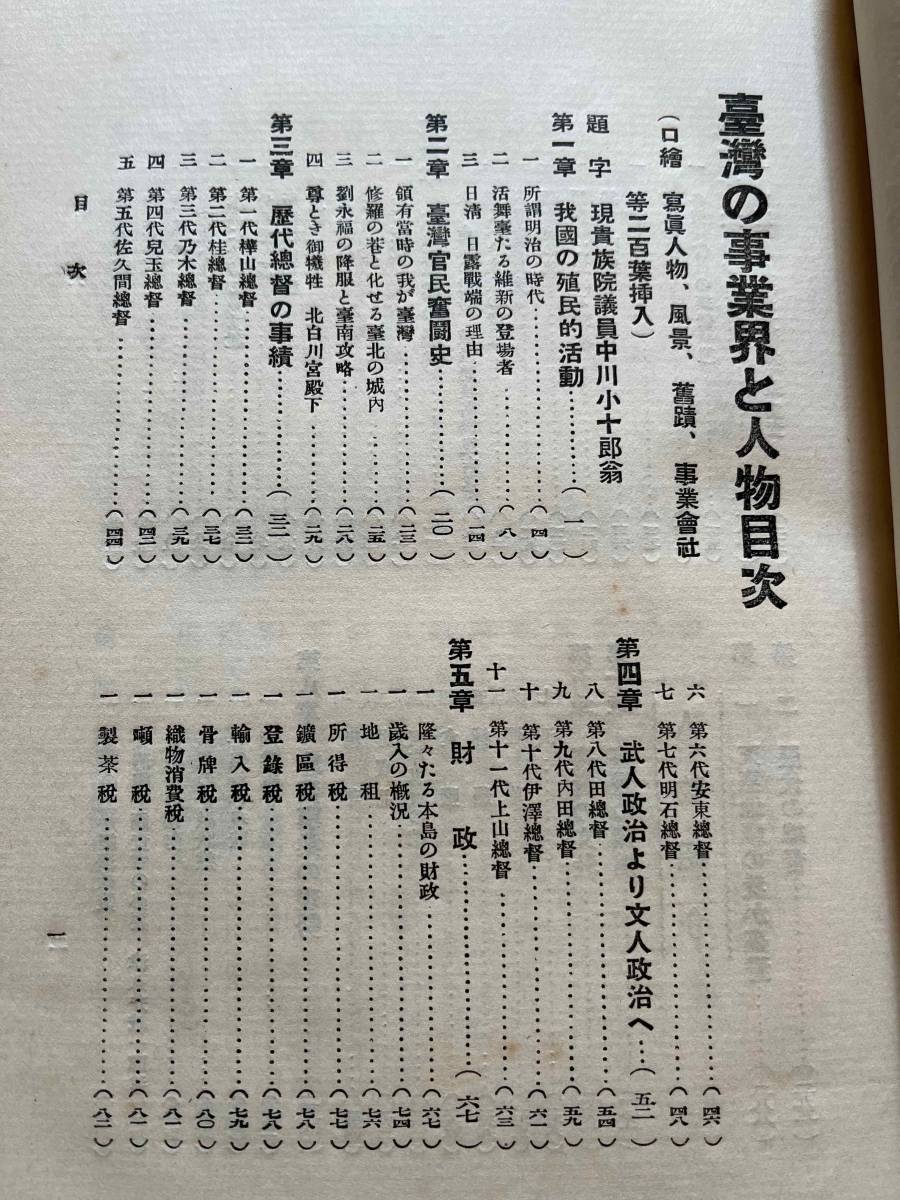 臺灣の事業界と人物目次
(口繪 寫眞人物、風景、舊蹟、事業會社
等二百葉挿入)
題字 現貴族院議員中川小十郎翁
第一章 我國の殖民的活動…………(一)
一 所謂明治の時代…………(四)
二 活舞臺たる維新の登場者…………(八)
三 日淸 日露戰端の理由…………(一四)
第二章 臺灣官民奮鬪史…………(二〇)
一 領有當時の我が臺灣…………(二三)
二 修羅の巷と化せる臺北の城內…………(二五)
三 劉永福の降服と臺南攻略…………(二八)
四 尊とき御犧牲 北白川宮殿下…………(二九)
第三章 歷代總督の事績…………(三二)
一 第一代樺山總督…………(三二)
二 第二代桂總督…………(三七)
三 第三代乃木總督…………(三九)
四 第四代兒玉總督…………(四二)
五 第五代佐久間總督…………(四四)
六 第六代安東總督…………(四六)
七 第七代明石總督…………(四八)
第四章 武人政治より文人政治へ…(五二)
八 第八代田總督…………(五四)
九 第九代內田總督…………(五九)
十 第十代伊澤總督…………(六一)
十一 第十一代上山總督…………(六三)
第五章 財政…………(六七)
一 隆々たる本島の財政…………(六七)
一 歲入の槪況…………(七四)
一 地租…………(七六)
一 所得稅…………(七七)
一 鑛區稅…………(七八)
一 登錄稅…………(七八)
一 輸入稅…………(七九)
一 骨牌稅…………(八〇)
一 織物消費稅…………(八一)
一 噸稅…………(八一)
一 製茶稅…………(八二)
目次
一